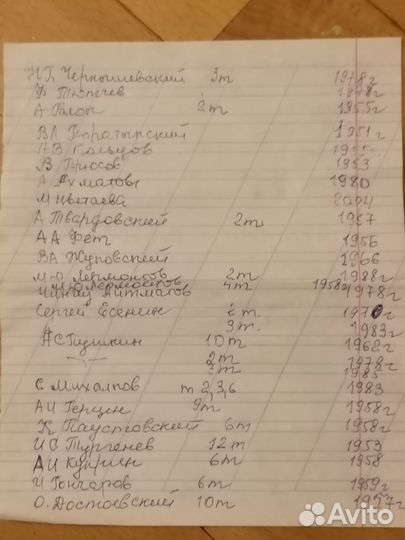 Н Г Чернышевский 3т 1978г
Ф Тютчев 1978г
А Блок 2т 1955г
ВЛ 1951г
АВ Кольцов
В Брюсов 1953
А Ахматова 1980
М Цветаева 2004
А Твардовский 2т 1967
А А Фет 1956
ВА Жуковский 1966
М-Ю Лермонтов 2т 1988г
М-Ю Лермонтов 4т 1958г
Чингиз Айтматов 1978г
Сергей Есенин 2т 1970г
3т. 1983г
АС Пушкин 10т 1962г
—"— 2т 1978г
3т 1985
С Михалков т 2,3,6 1983
АИ Герцен 9т 1958г
К Паустовский 6т 1958г
И С Тургенев 12т 1953
АИ Куприн 6т 1958
И Гончаров 6т 1959г
О. Достоевский 10т
Avito